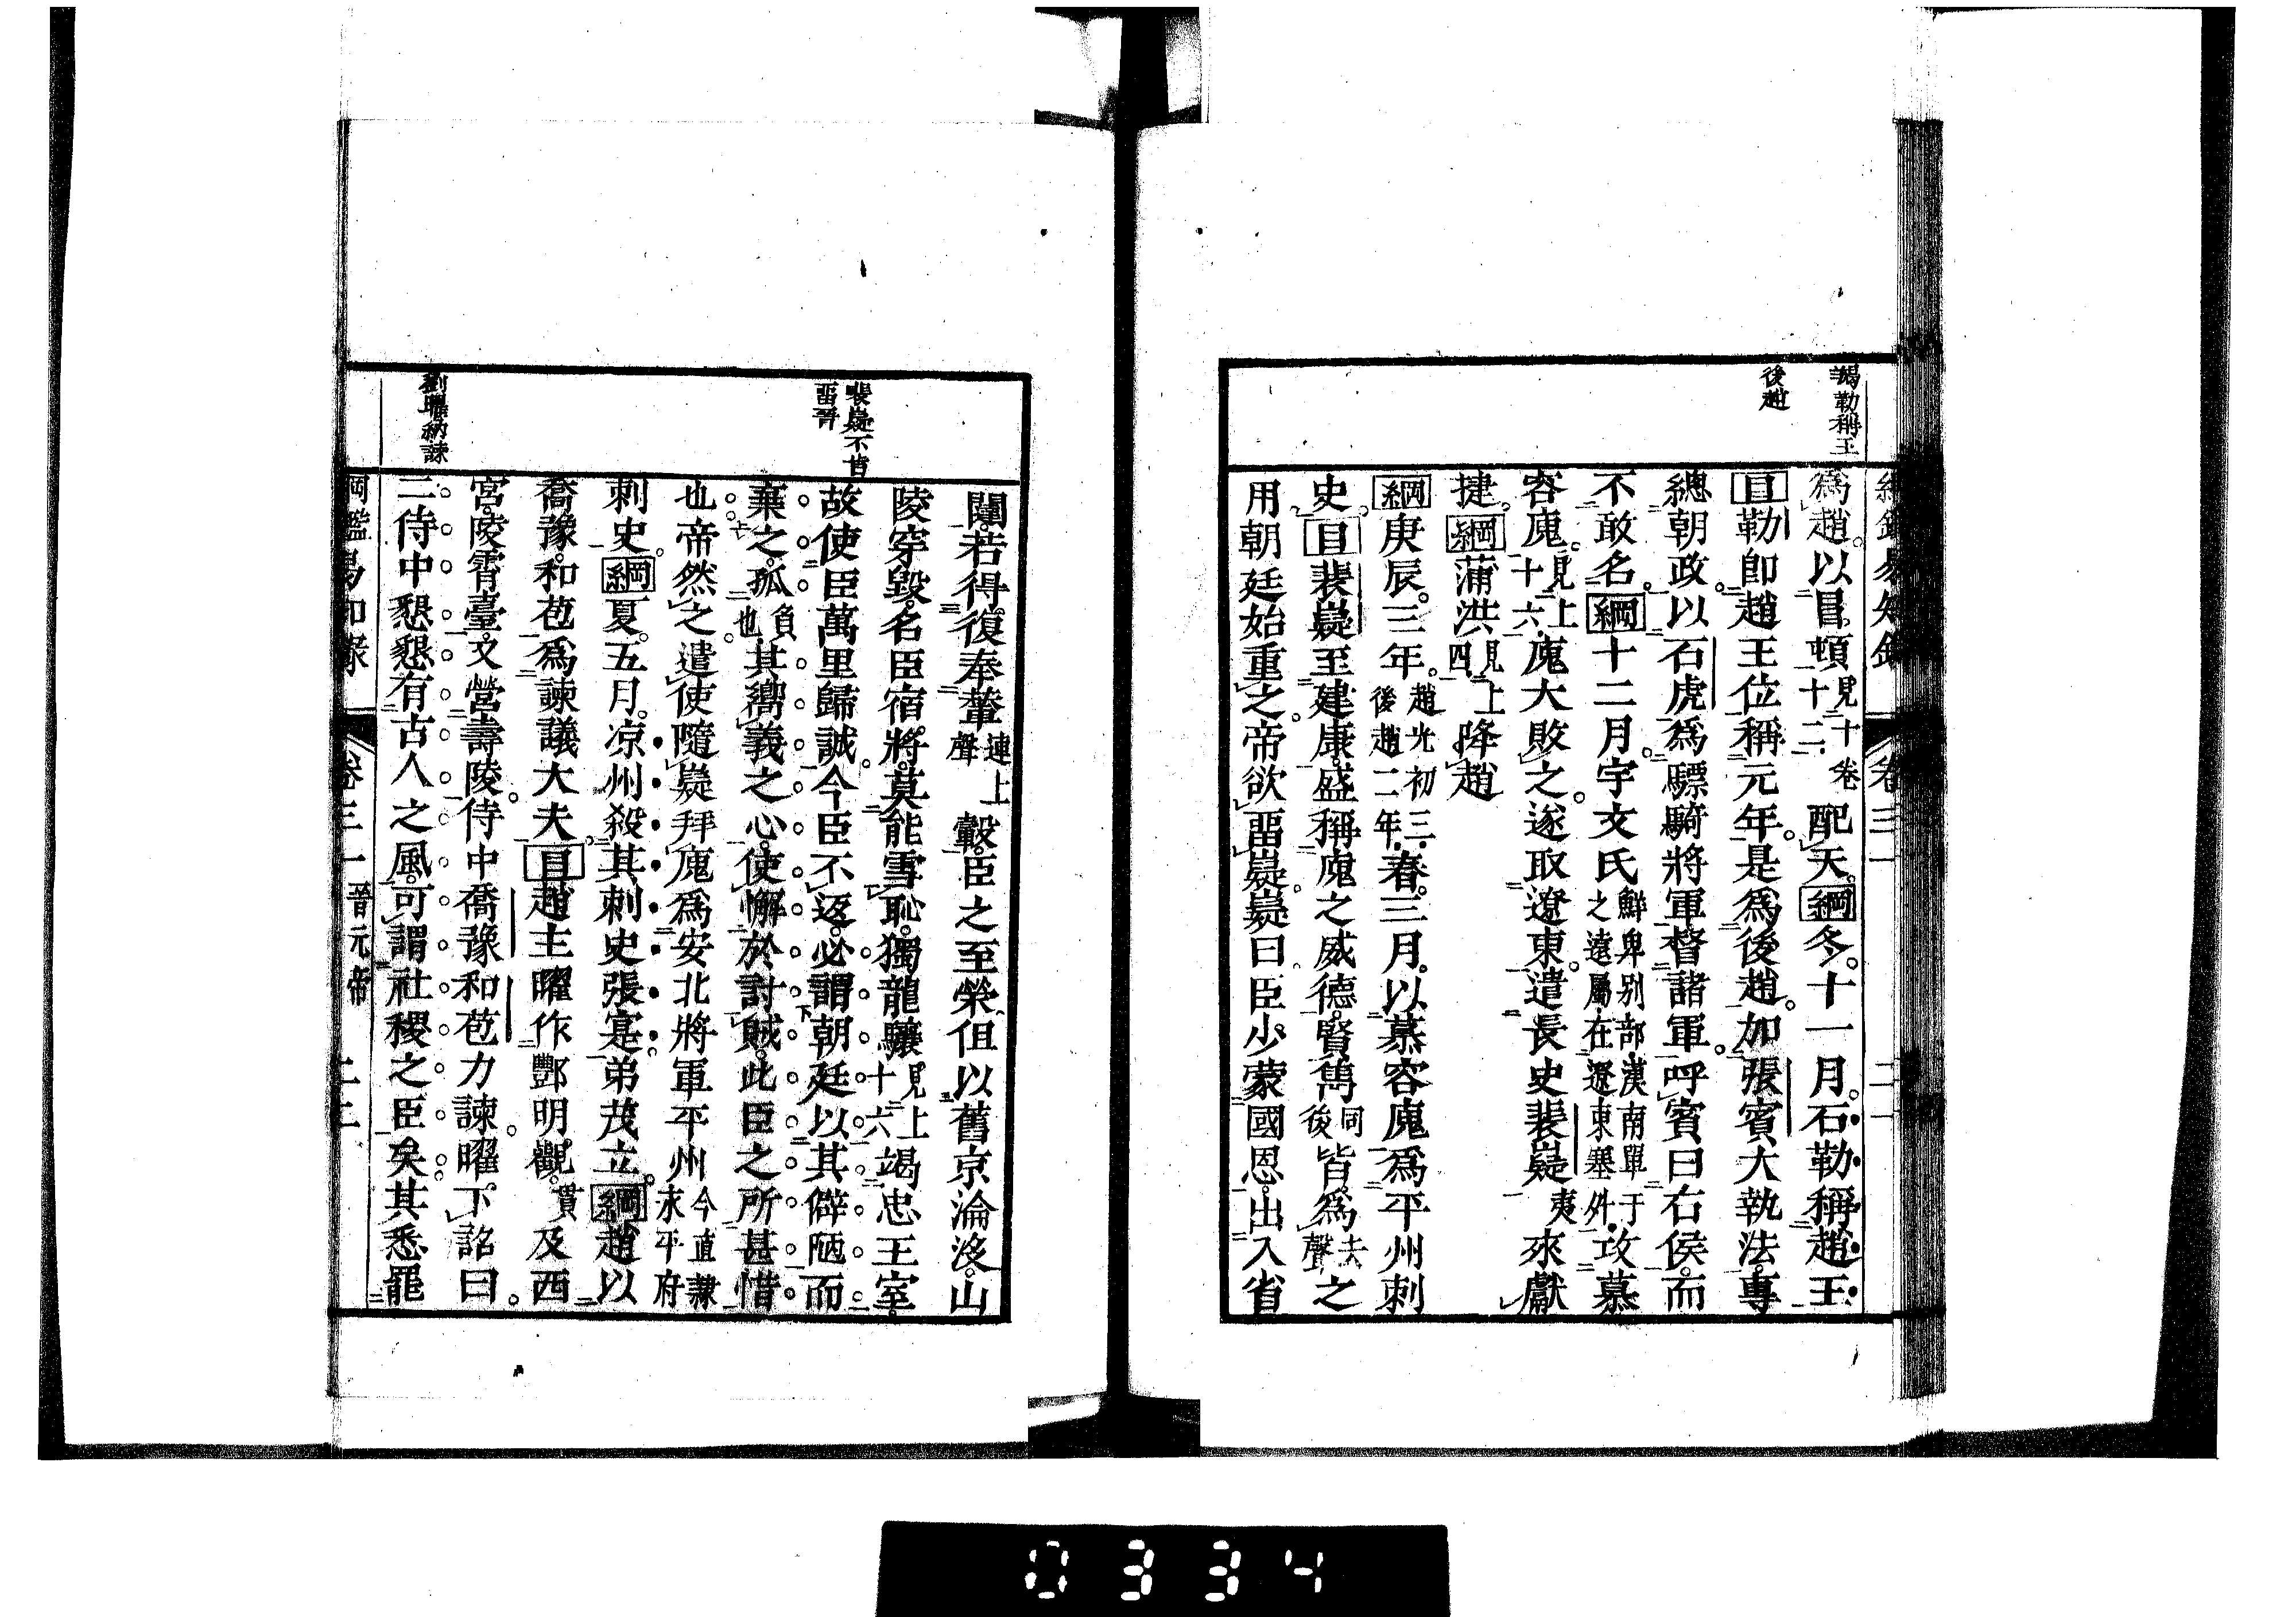 羯勒稱王
後趙
爲趙以冒頓見十卷十二配天綱冬十一月石勒稱趙王
目勒卽趙王位稱元年是爲後趙加張賓大執法專
總朝政以石虎爲驃騎將軍督諸軍呼賓曰右侯而
不敢名綱十二月宇文氏鮮卑別部漢南單于之遠屬在遼東塞外攻慕
容廆見上十六廆大敗之遂取遼東遣長史裴嶷夷來獻
捷綱蒲洪見上四降趙
綱庚辰三年趙光初三後趙二年春三月以慕容廆爲平州刺
史目裴嶷至建康盛稱廆之威德賢雋同後皆爲去聲之
用朝廷始重之帝欲畱嶷嶷曰臣少蒙國恩出入省
裴嶷不肯
畱晉
劉曜納諫
闥若得復奉輦連上聲轂臣之至榮但以舊京淪沒山
陵穿毀名臣宿將莫能雪恥獨龍驤見上十六竭忠王室
故使臣萬里歸誠今臣不返必謂朝廷以其僻陋而
棄之孤負也其嚮義之心使懈於討賊此臣之所甚惜
也帝然之遣使隨嶷拜廆爲安北將軍平州今直隸永平府
刺史綱夏五月凉州殺其刺史張寔弟茂立綱趙以
喬豫和苞爲諫議大夫目趙主曜作酆明觀貫及西
宮陵霄臺又營壽陵侍中喬豫和苞力諫曜下詔曰
二侍中懇懇有古人之風可謂社稷之臣矣其悉罷
綱鑑易知錄 卷三一 晉元帝